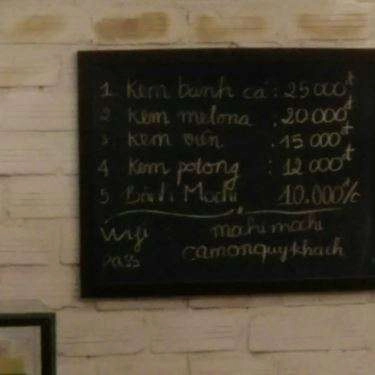 1 Kem banh cá : 25 000đ
2 Kem melona : 20.000đ
3 Kem viên : 15 000đ
4 Kem polong : 12 000đ
5 Bánh Mochi 10.000đ/c
mahimachi
camonquykhach